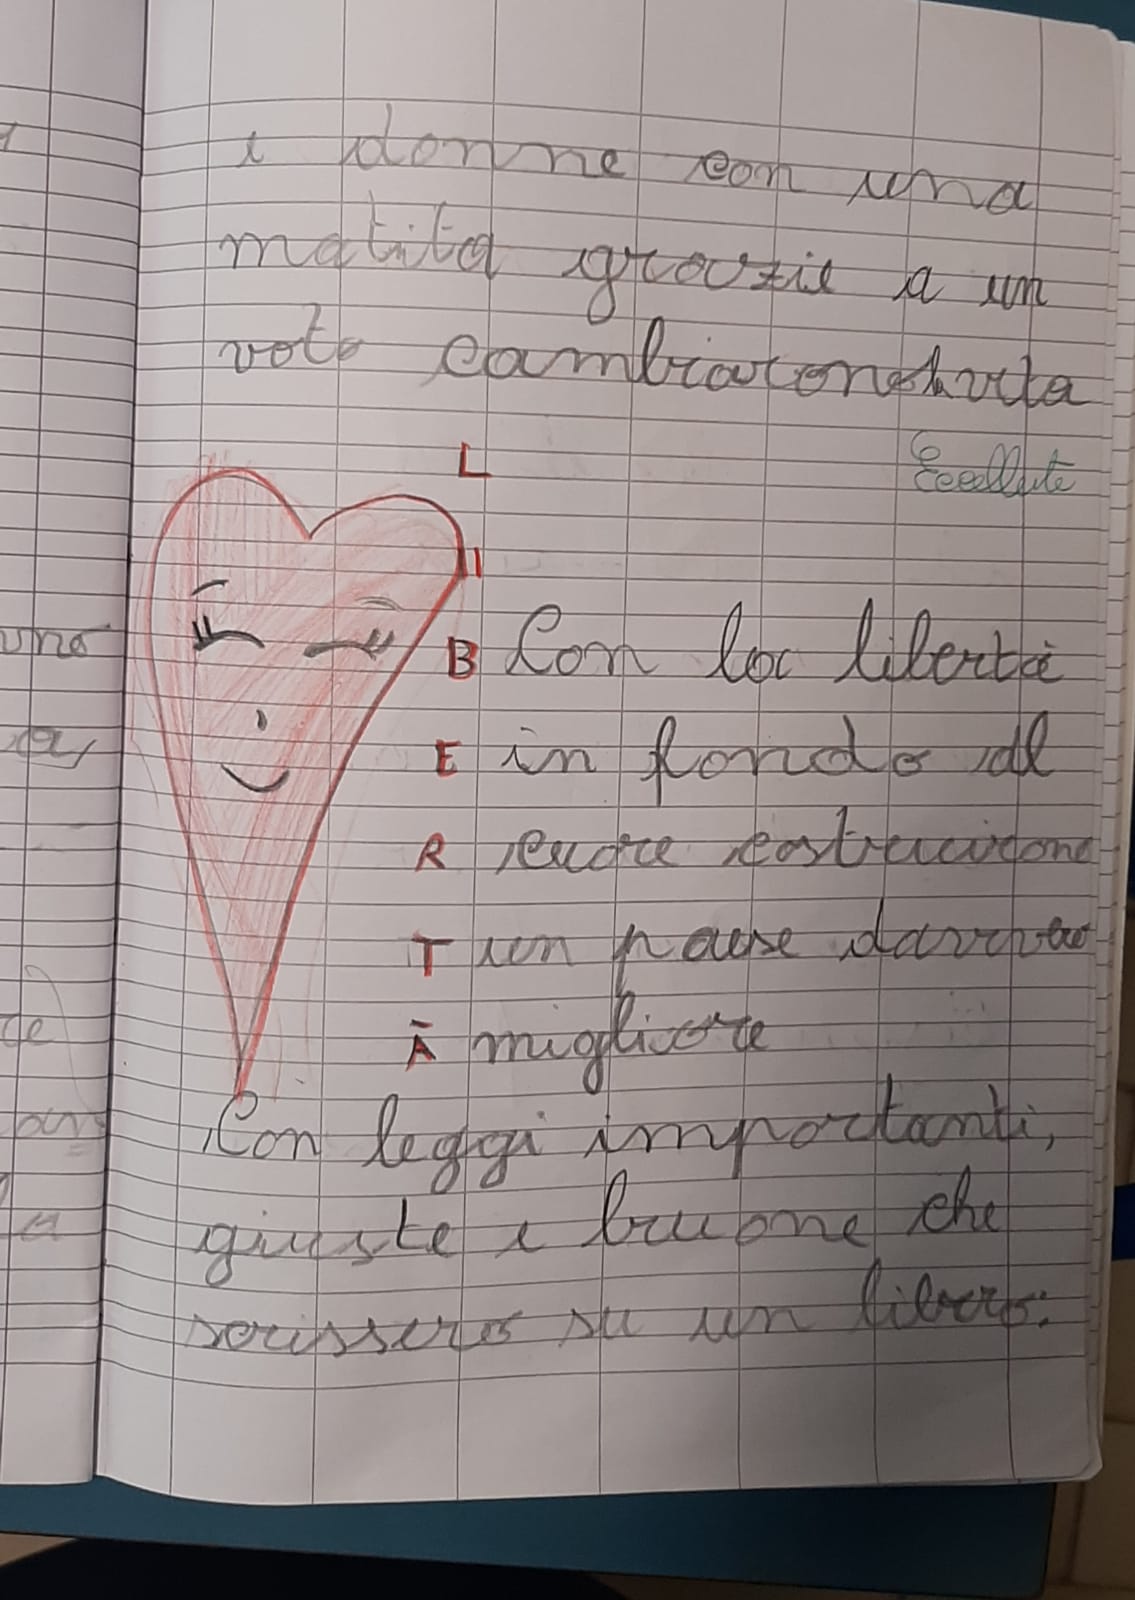 e donne con una
matita grazie a un
voto cambiarono la vita
Eccellente
L
I
B Con la libertà
E in fondo al
R cuore costruirono
T un paese davvero
À migliore
Con leggi importanti,
giuste e buone che
scrissero su un libro.
uno
a,